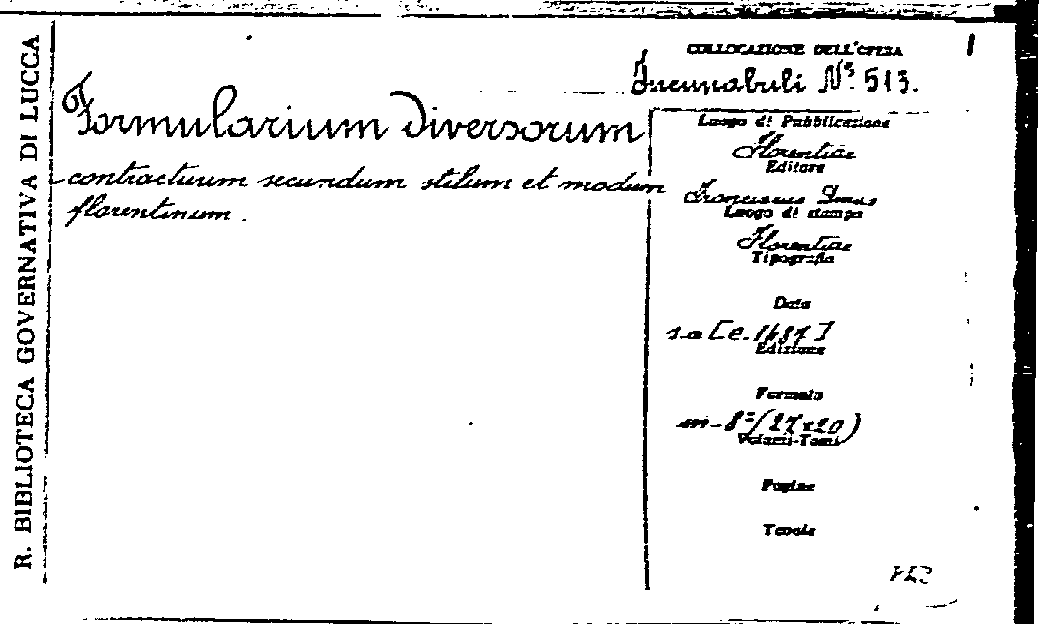 R. BIBLIOTECA GOVERNATIVA DI LUCCA
Formularium diversorum
contractuum secundum stilum et modum
florentinum.
COLLOCAZIONE DELL'OPERA
1
Incunabuli N° 513.
Luogo di Pubblicazione
Florentiae
Editore
Franciscus
Luogo di stampa
Florentiae
Tipografia
Data
s.a [c. 1487]
Edizione
Formato
in-8°/(27x20)
Volumi-Tomi
Pagine
Tavole